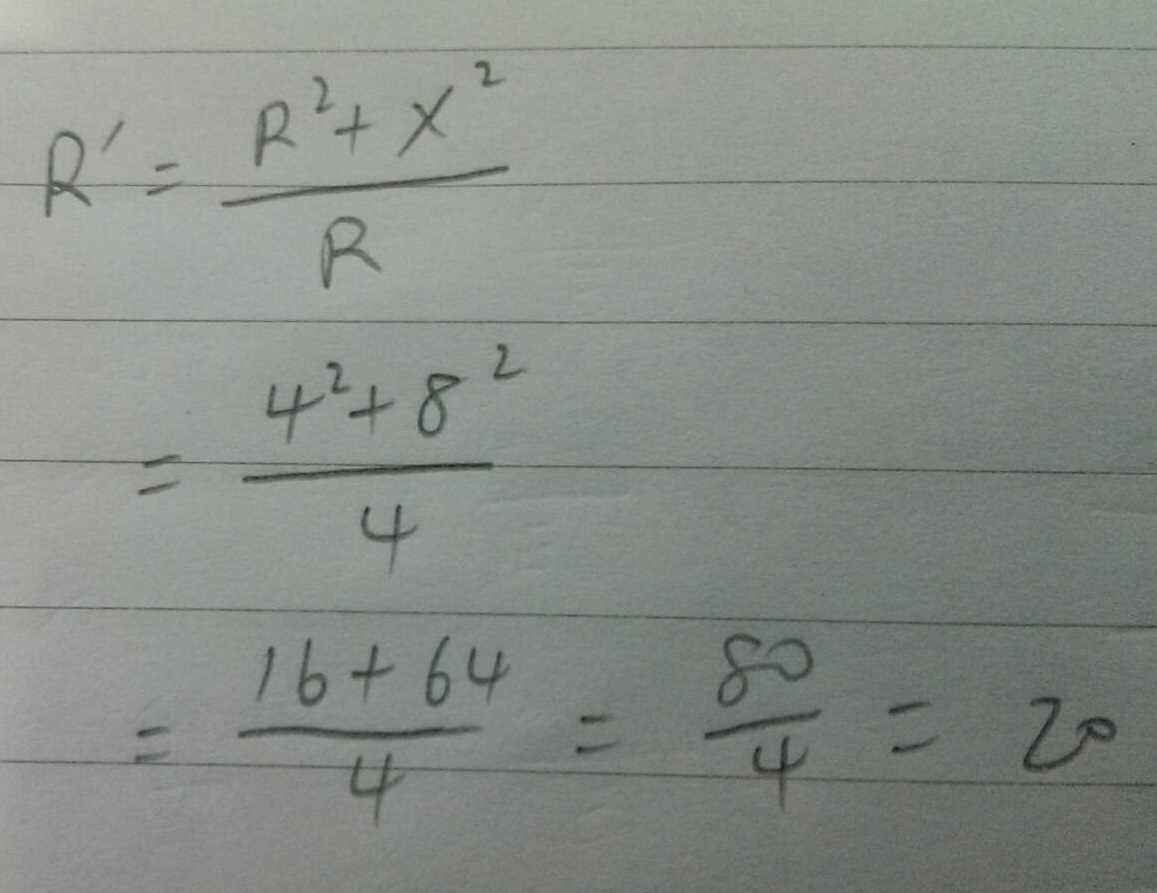 R′ = (R² + X²) / R
= (4² + 8²) / 4
= (16 + 64) / 4 = 80 / 4 = 20